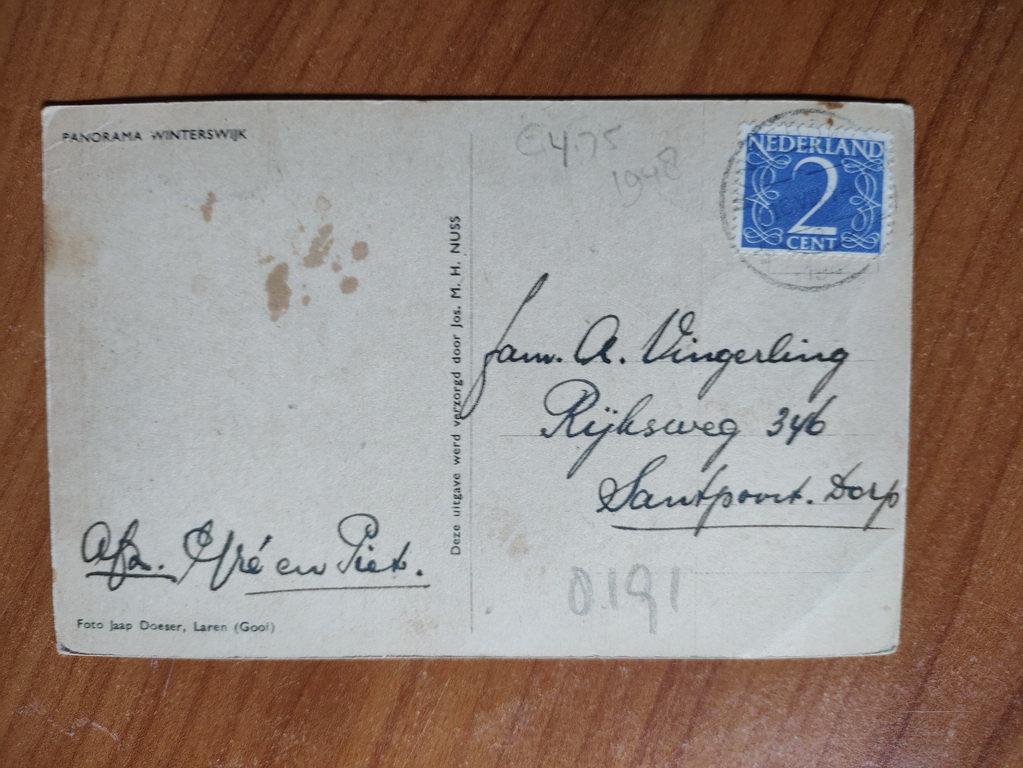 PANORAMA WINTERSWIJK
€4.75
1948
NEDERLAND
2
CENT
Deze uitgave werd verzorgd door Jos. M. H. NUSS
Fam. A. Vingerling
Rijksweg 346
Santpoort. Dorp
Afz. en Piet.
Foto Jaap Doeser, Laren (Gooi)
0191